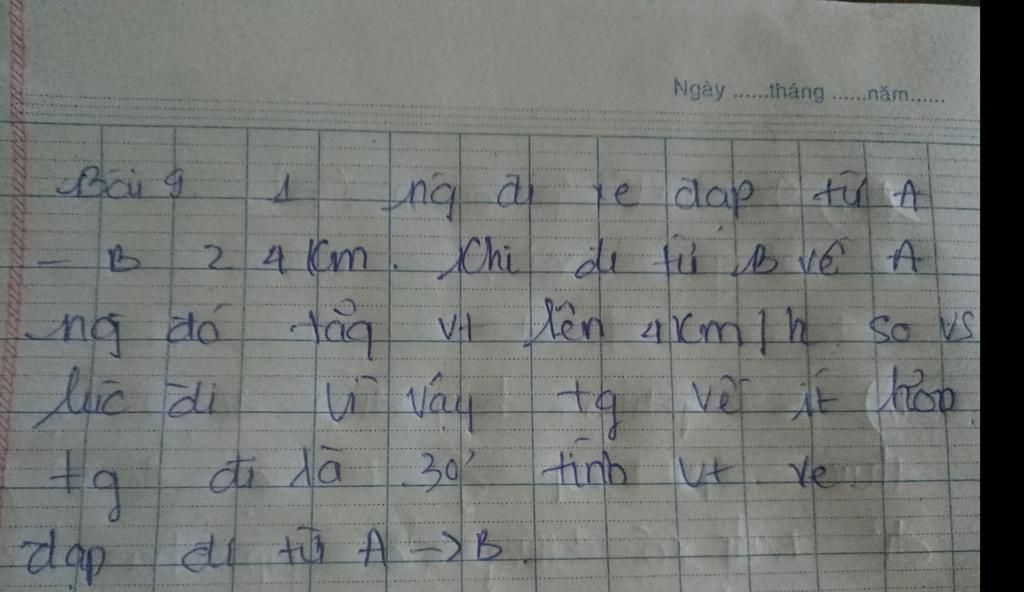 Ngày ......tháng ......năm......
Bài 9 1 ng đi xe đạp từ A
- B 24 Km. Khi đi từ B về A
ng đó tăg vt lên 4 Km/h so vs
lúc đi vì vậy tg về ít hơn
tg đi là 30' tính vt xe
đạp đi từ A -> B.